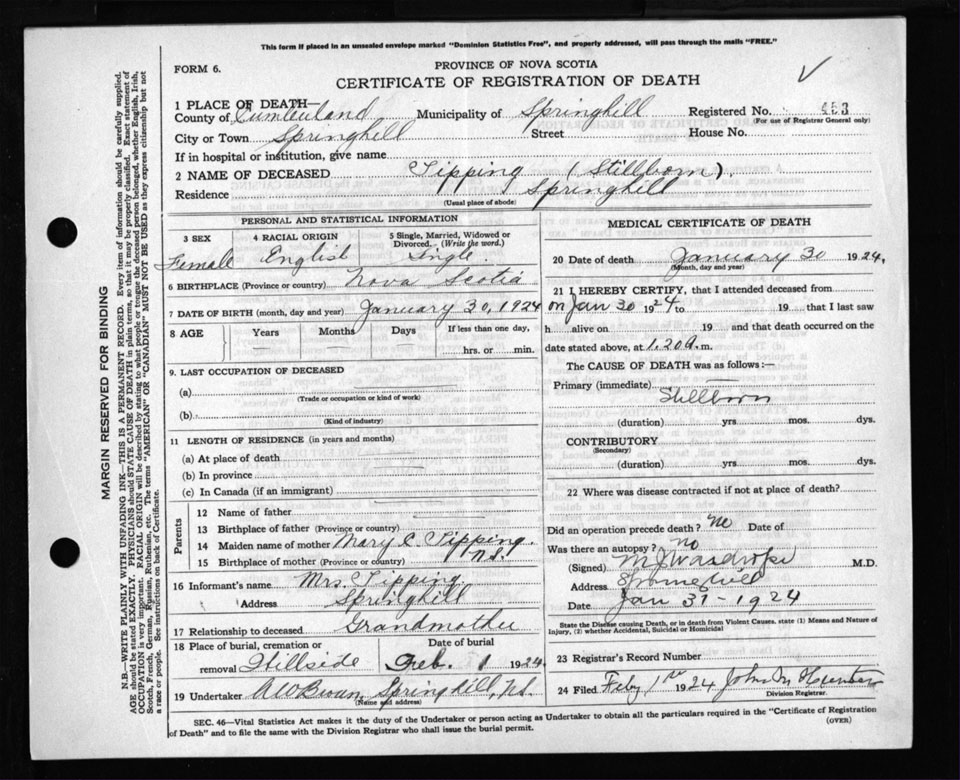 This form if placed in an unsealed envelope marked "Dominion Statistics Free", and properly addressed, will pass through the mails "FREE."
FORM 6.
PROVINCE OF NOVA SCOTIA
CERTIFICATE OF REGISTRATION OF DEATH
1 PLACE OF DEATH—
County of Cumberland Municipality of Springhill Registered No. 453
(For use of Registrar General only)
City or Town Springhill Street House No.
If in hospital or institution, give name
2 NAME OF DECEASED Tipping (Stillborn).
Residence Springhill
(Usual place of abode)
PERSONAL AND STATISTICAL INFORMATION
3 SEX 4 RACIAL ORIGIN 5 Single, Married, Widowed or Divorced. (Write the word.)
Female English Single.
6 BIRTHPLACE (Province or country) Nova Scotia
7 DATE OF BIRTH (month, day and year) January 30, 1924
8 AGE Years Months Days If less than one day,
hrs. or min.
9. LAST OCCUPATION OF DECEASED
(a)
(Trade or occupation or kind of work)
(b)
(Kind of industry)
11 LENGTH OF RESIDENCE (in years and months)
(a) At place of death
(b) In province
(c) In Canada (if an immigrant)
Parents
12 Name of father
13 Birthplace of father (Province or country)
14 Maiden name of mother Mary C Tipping.
15 Birthplace of mother (Province or country) N.S.
16 Informant's name Mrs. Tipping
Address Springhill
17 Relationship to deceased Grandmother
18 Place of burial, cremation or removal Hillside
Date of burial
Feb. 1 1924
19 Undertaker Springhill, N.S.
(Name and address)
MEDICAL CERTIFICATE OF DEATH
20 Date of death January 30 1924,
(Month, day and year)
21 I HEREBY CERTIFY, that I attended deceased from
on Jan 30 1924 to 19 that I last saw
h alive on 19 and that death occurred on the
date stated above, at 1.20 a.m.
The CAUSE OF DEATH was as follows:—
Primary (immediate)
Stillborn
(duration) yrs mos. dys.
CONTRIBUTORY
(Secondary)
(duration) yrs mos. dys.
22 Where was disease contracted if not at place of death?
Did an operation precede death? No Date of
Was there an autopsy? No
(Signed) M.D.
Address Springhill
Date Jan 31-1924
State the Disease causing Death, or in death from Violent Causes, state (1) Means and Nature of Injury, (2) whether Accidental, Suicidal or Homicidal
23 Registrar's Record Number
24 Filed Feby 1st 1924 John M Hunter
Division Registrar.
SEC. 46—Vital Statistics Act makes it the duty of the Undertaker or person acting as Undertaker to obtain all the particulars required in the "Certificate of Registration
of Death" and to file the same with the Division Registrar who shall issue the burial permit.
(OVER)
MARGIN RESERVED FOR BINDING
N.B.—WRITE PLAINLY WITH UNFADING INK—THIS IS A PERMANENT RECORD. Every item of information should be carefully supplied.
AGE should be stated EXACTLY. PHYSICIANS should STATE CAUSE OF DEATH in plain terms, so that it may be properly classified. Exact statement of
OCCUPATION is very important. RACIAL ORIGIN will be described by stating to what people or tongue the deceased person belonged, whether English, Irish,
Scotch, French, German, Russian, Ruthenian, etc. The terms "AMERICAN" OR "CANADIAN" MUST NOT BE USED as they express citizenship but not
a race or people. See instructions on back of Certificate.